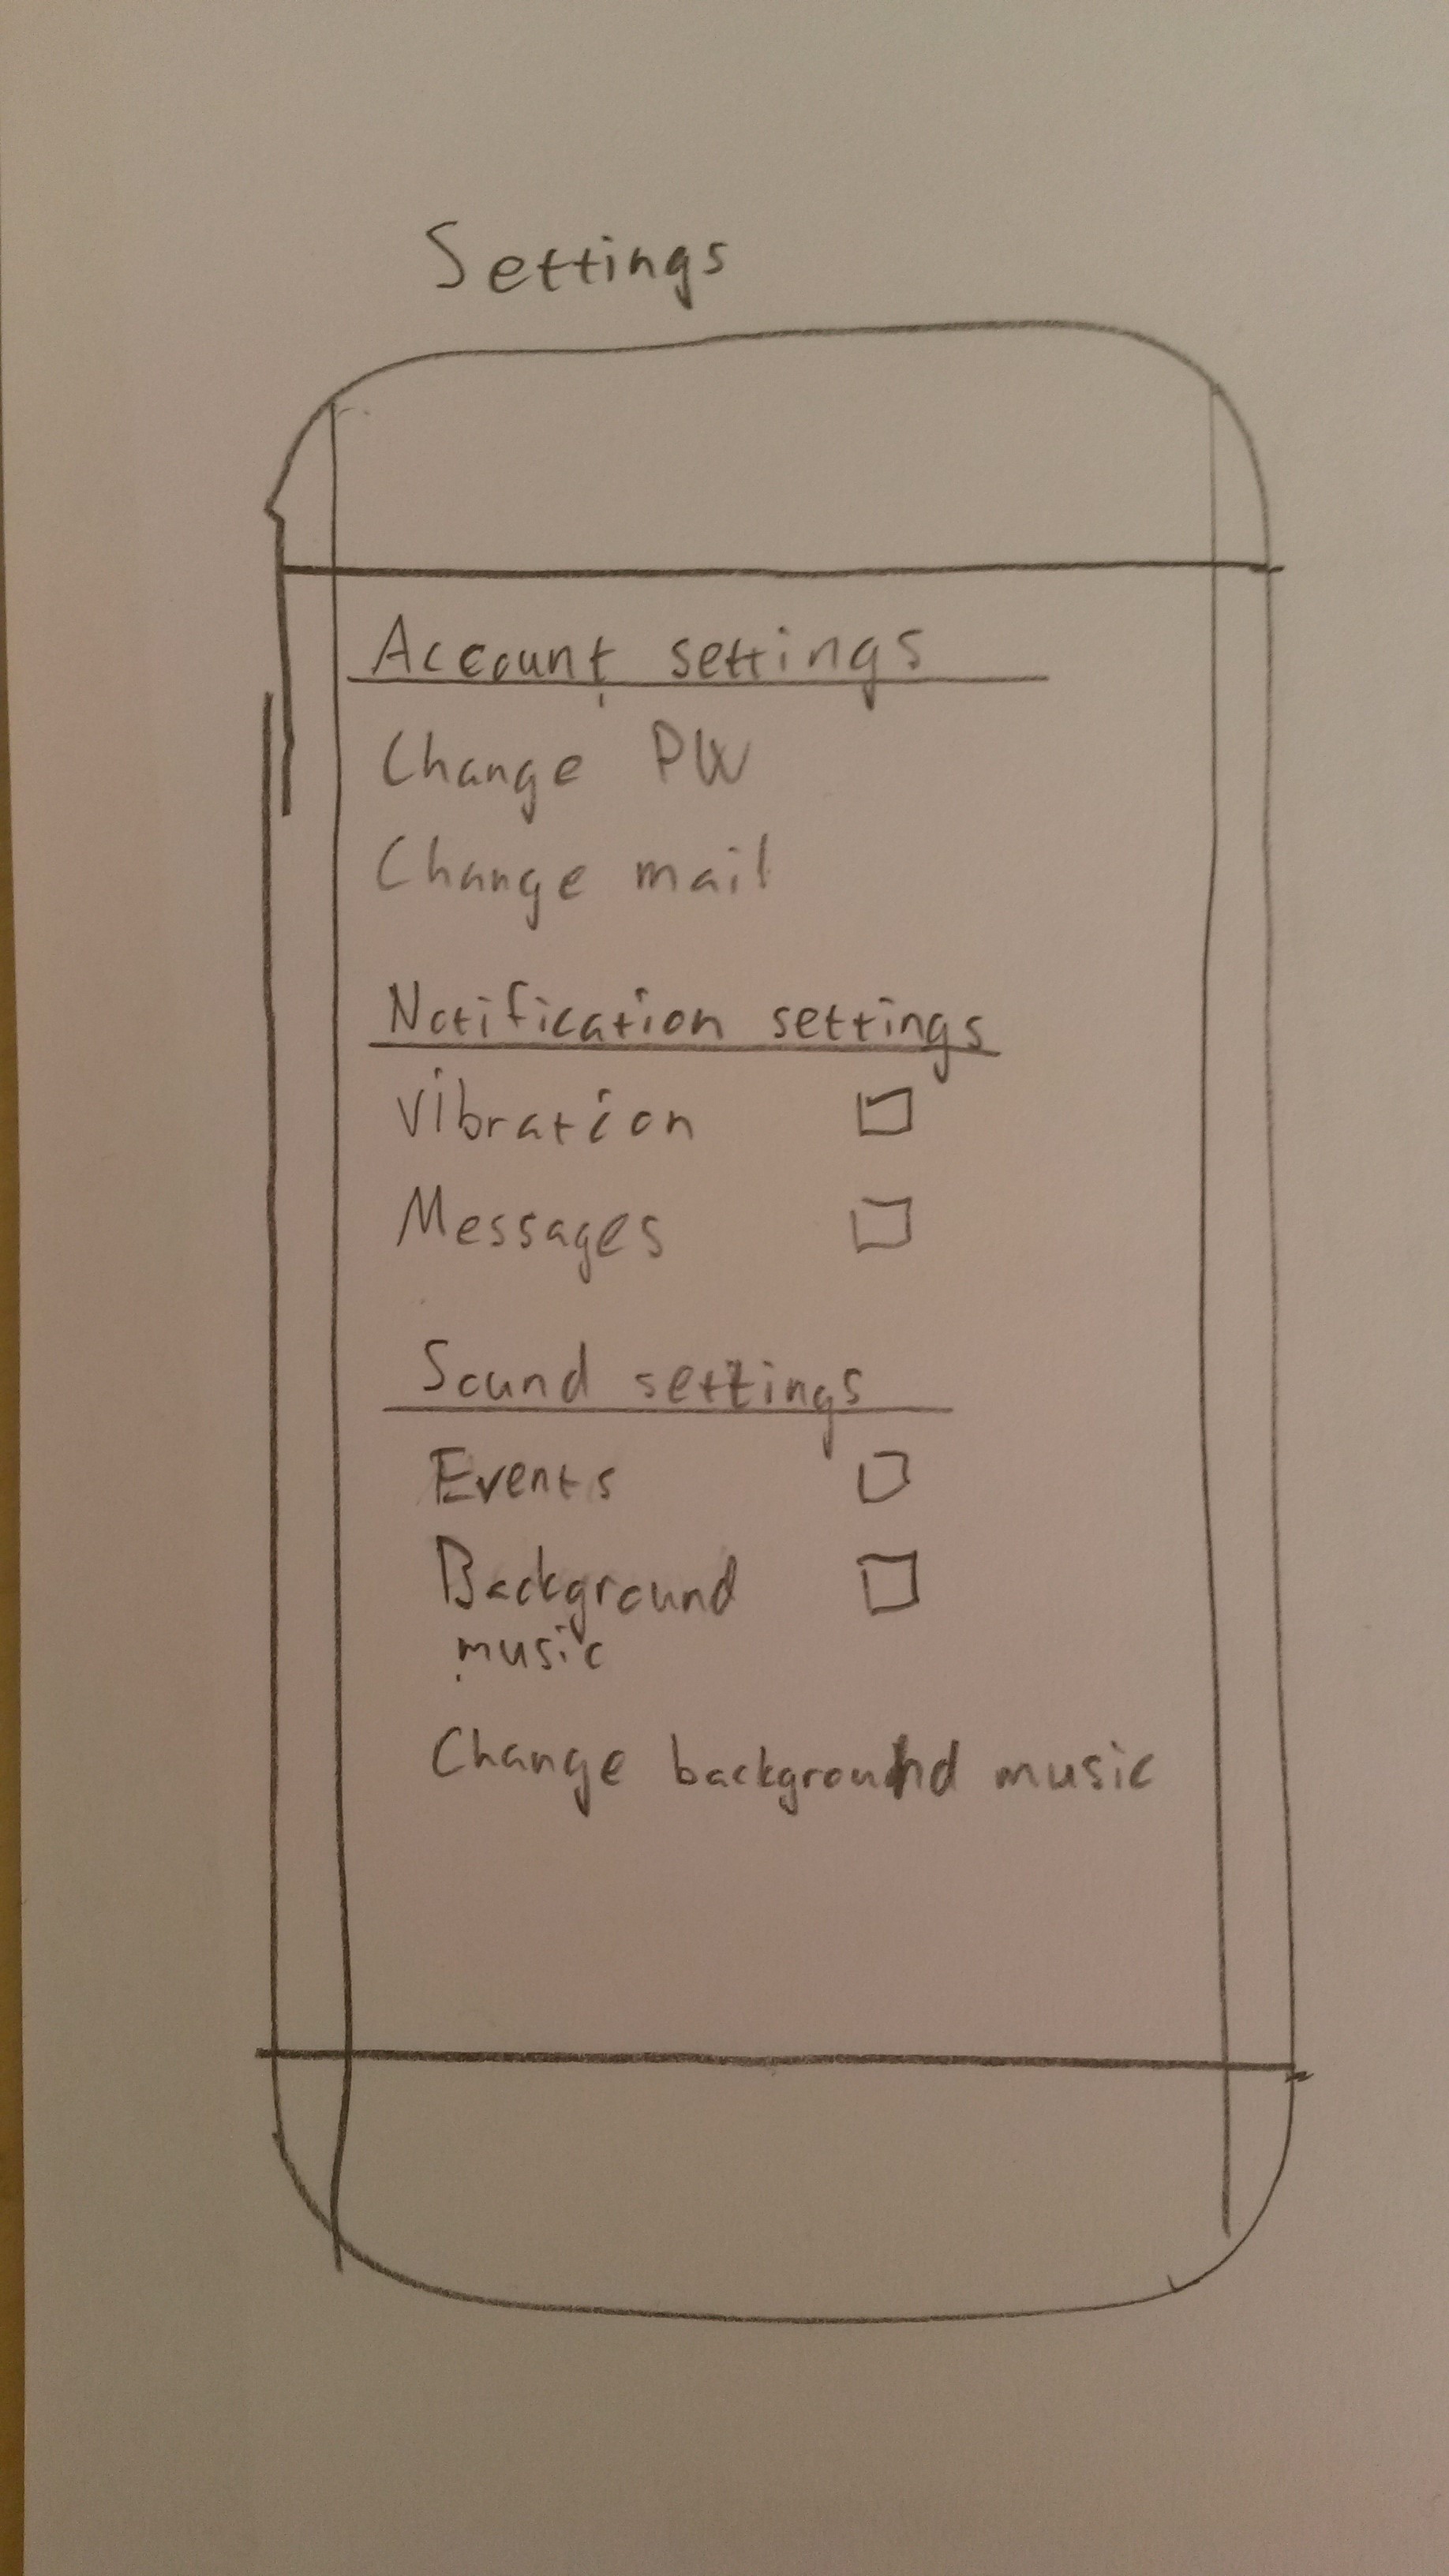 Settings
Account settings
Change PW
Change mail
Notification settings
Vibration
Messages
Sound settings
Events
Background
music
Change background music